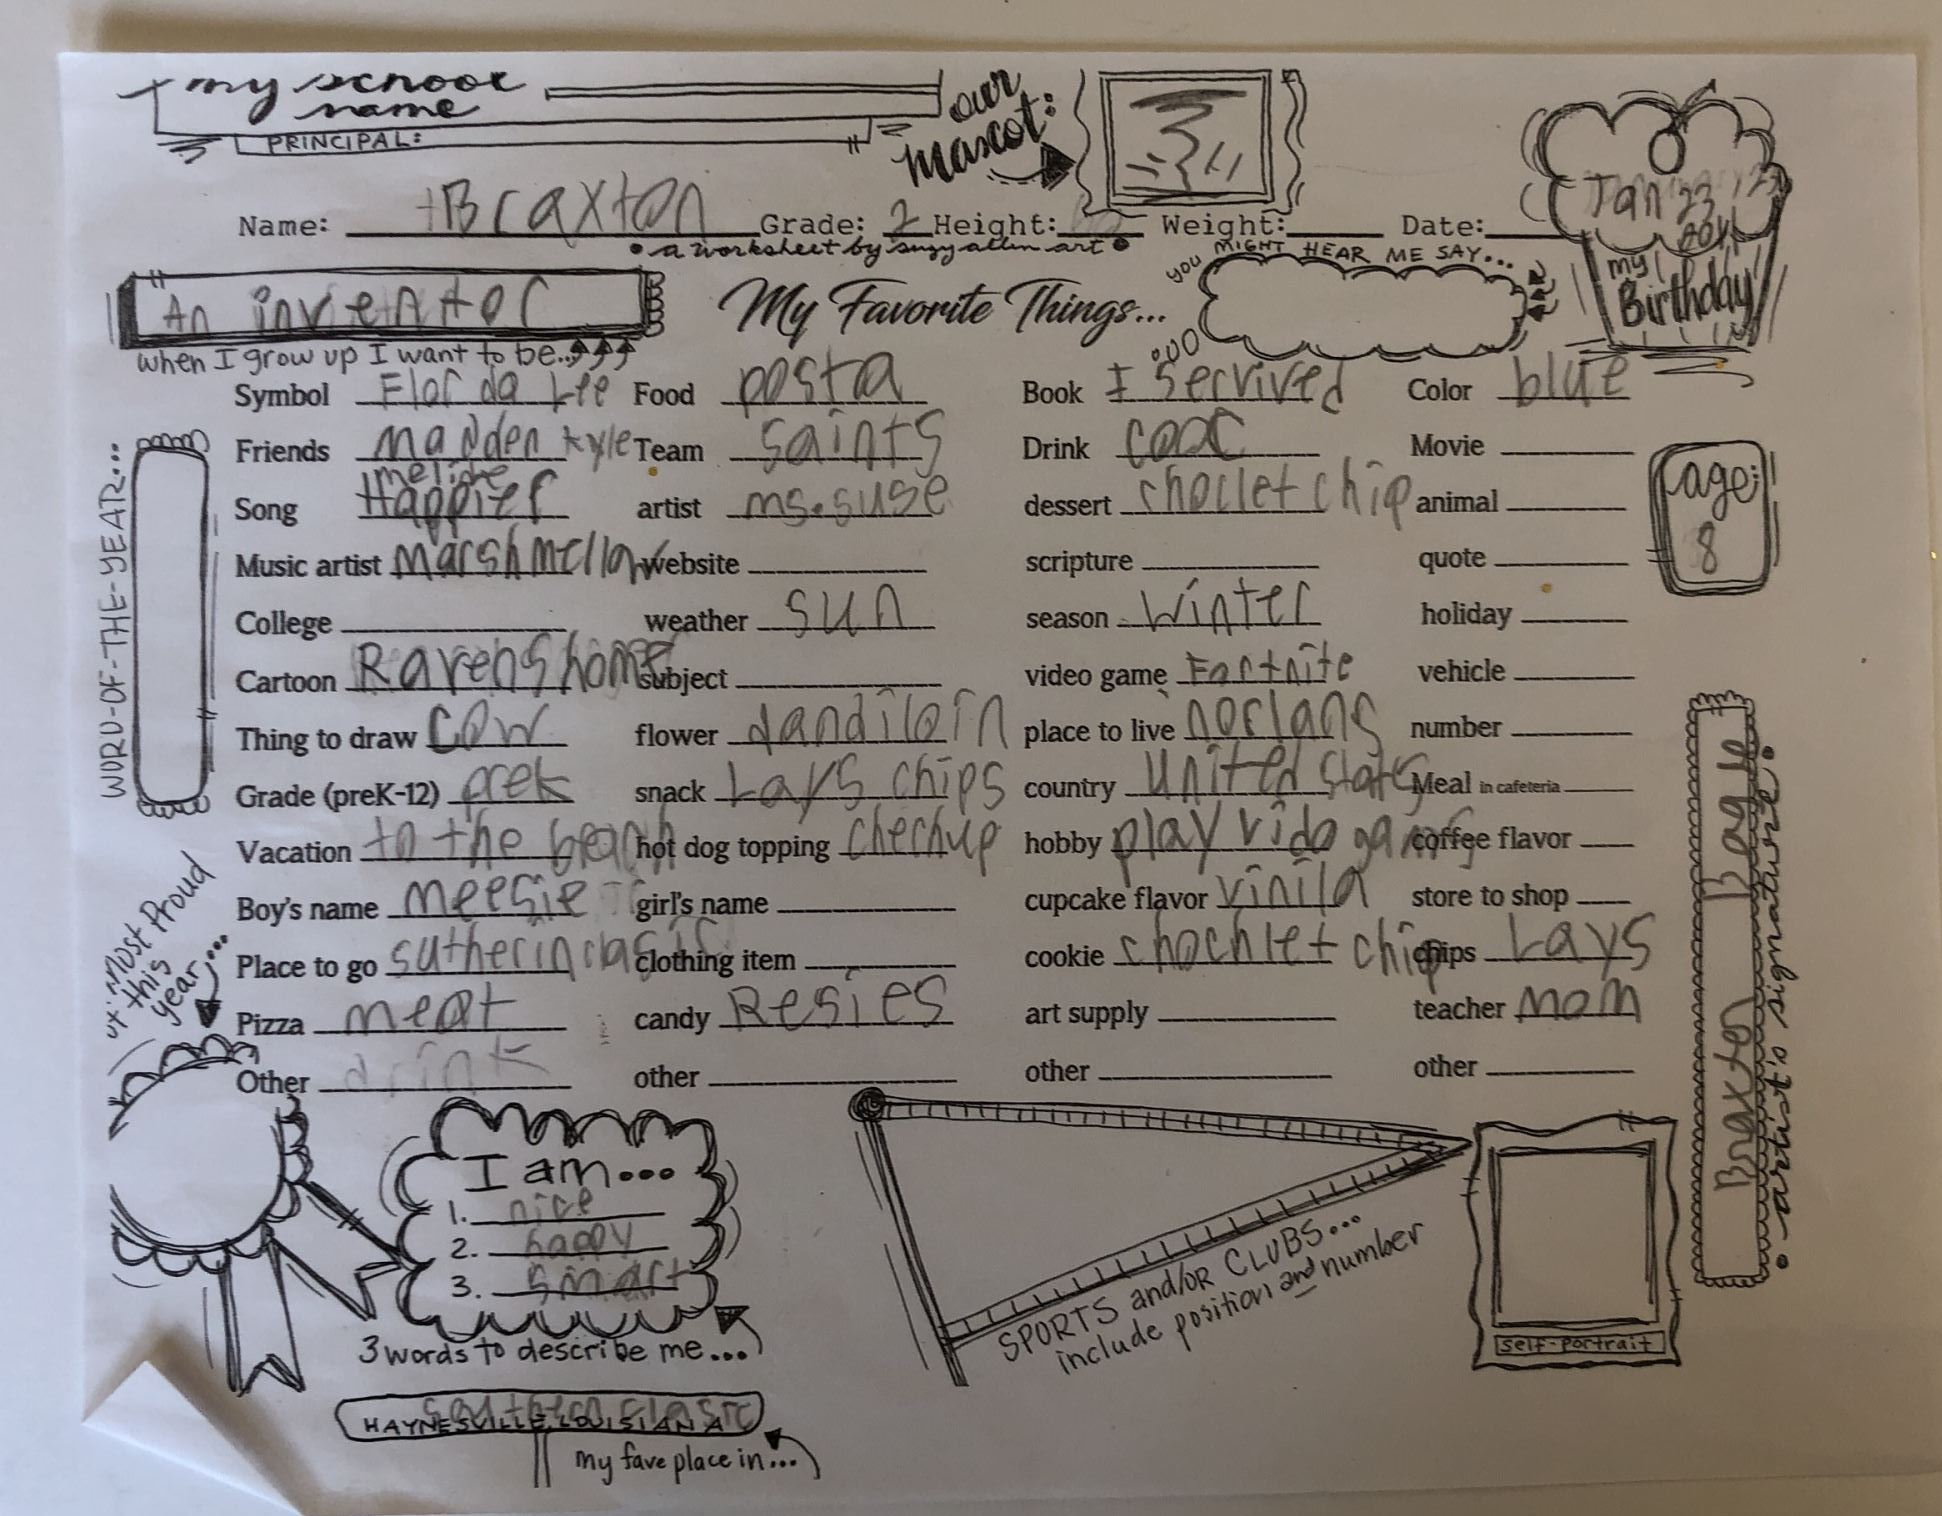 my school name
PRINCIPAL:
our mascot:
Name: Braxton Grade: 2 Height: Weight: Date:
• a worksheet by suzy allen art •
Jan 23
my Birthday
you MIGHT HEAR ME SAY...
An inventor
when I grow up I want to be...
My Favorite Things...
Symbol Flor da Lee Food posta Book I Serrived Color blue
Friends Madden kyle Team Saints Drink coac Movie
melide
Song Happier artist ms.suse dessert choclet chip animal
Music artist Marshmellow website scripture quote
College weather sun season Winter holiday
Cartoon Ravens home subject video game Fortnite vehicle
Thing to draw cow flower dandiloin place to live norlans number
Grade (preK-12) prek snack Lays chips country united states Meal in cafeteria
Vacation to the beach hot dog topping chechup hobby play vido games coffee flavor
Boy's name meesie girl's name cupcake flavor vinila store to shop
Place to go sutherin clasic clothing item cookie chochlet chip chips Lays
Pizza meat candy Resies art supply teacher mom
Other drink other other other
WORD-OF-THE-YEAR...
age:
8
Most Proud
this
year...
Braxton
• artist's signature •
I am...
1. nice
2. happy
3. smart
3 words to describe me...
SPORTS and/or CLUBS...
include position and number
self-portrait
southern clasic
HAYNESVILLE, LOUISIANA
my fave place in...